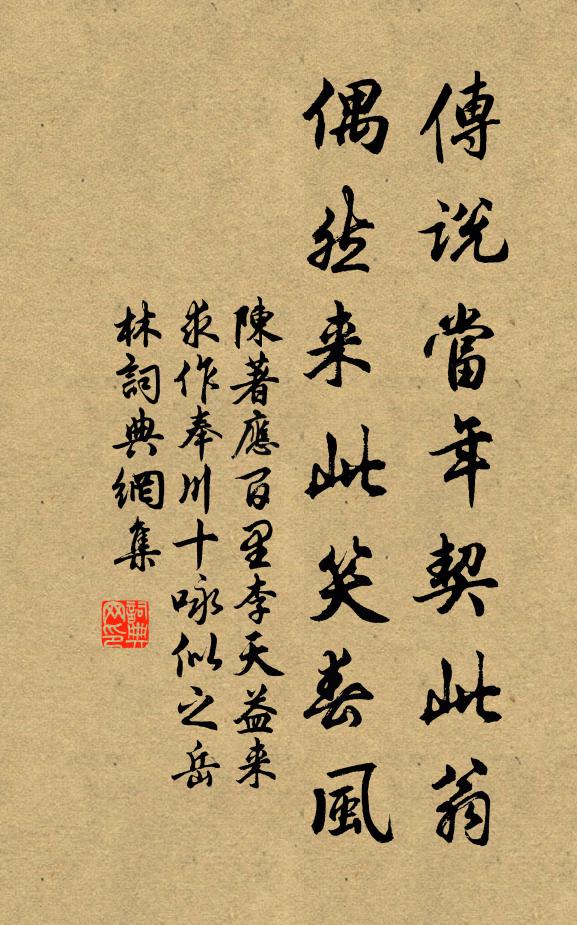 傳說當年契此翁
偶然来此笑春風
陳著應百里李天益来
求作奉川十咏似之岳
林詞典網集
詞典网印